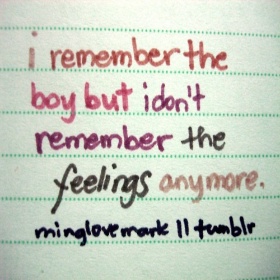 i remember the
boy but i don't
remember the
feelings anymore.
minglovemark || tumblr